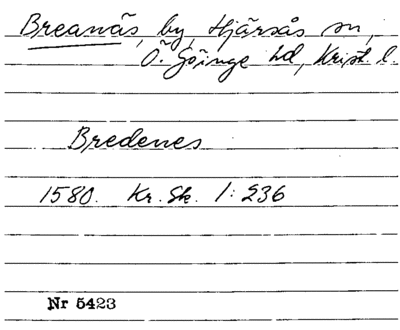 Breanäs, by, Hjärsås sn,
Ö. Göinge hd, Krist. l.
Bredenes
1580. Kr. Sk. 1: 236
Nr 5423